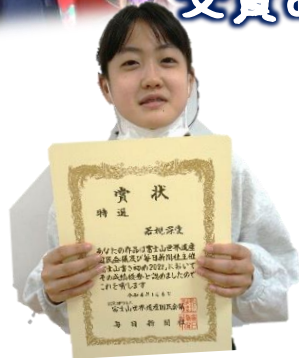 受賞
賞状
特選
あなたの作品は富士山世界遺産
国民会議及び毎日新聞社主催
富士山書き初め2022において
その成績優秀と認めましたので
これを賞します
富士山世界遺産国民会議
毎日新聞社